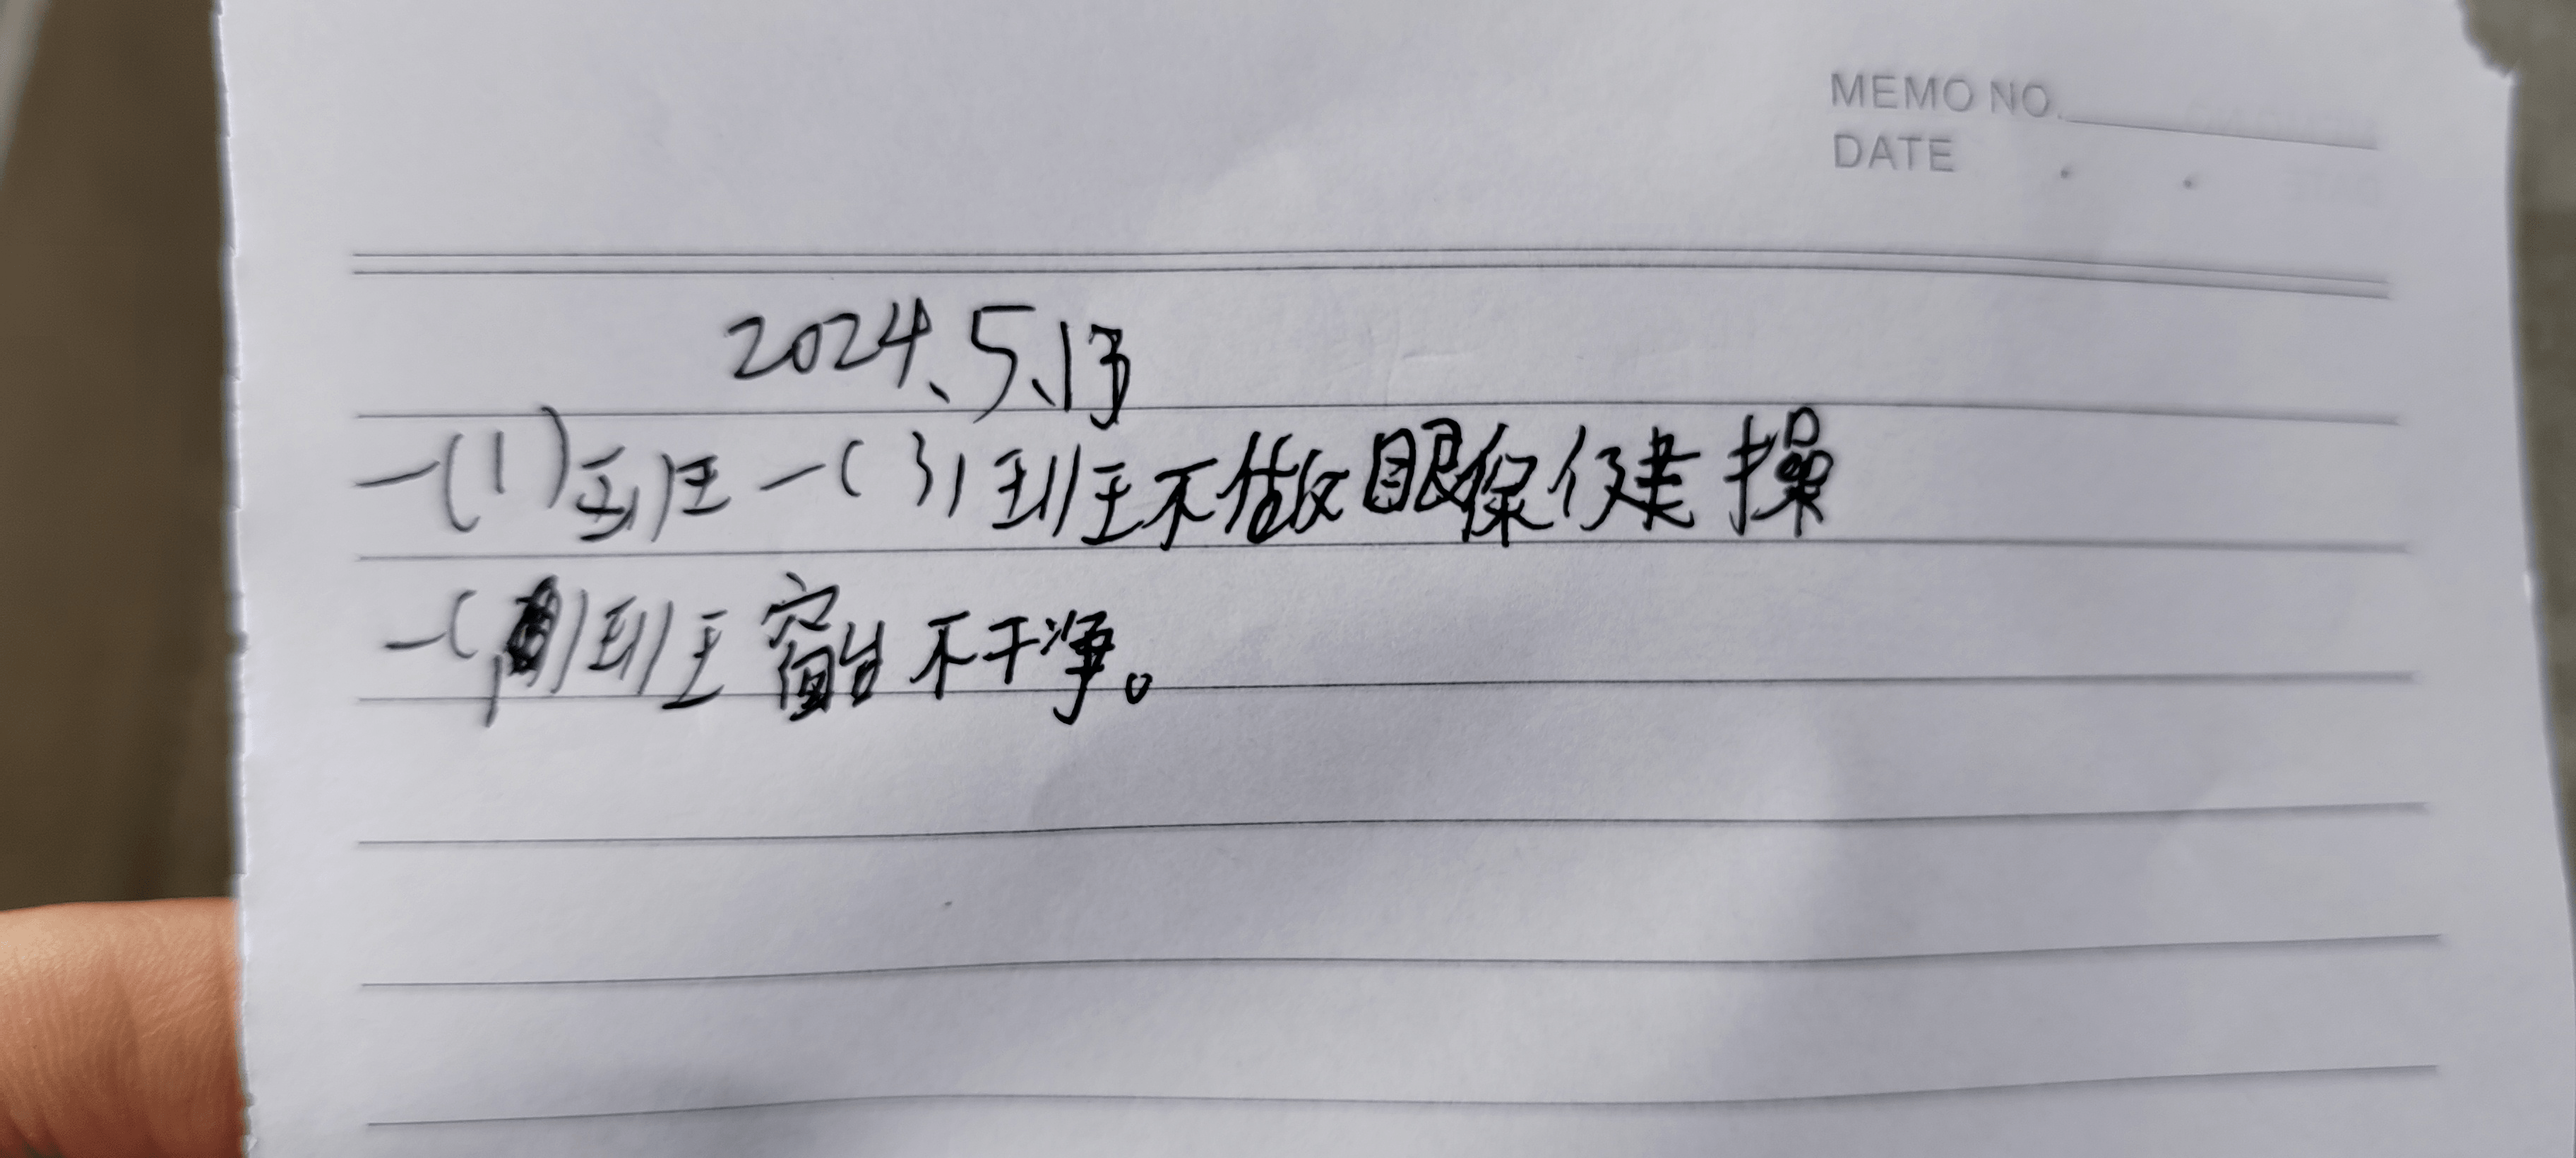 MEMO NO.
DATE . .
2024、5、13
一(1)班一(3)班不做眼保健操
一( )班窗台不干净。